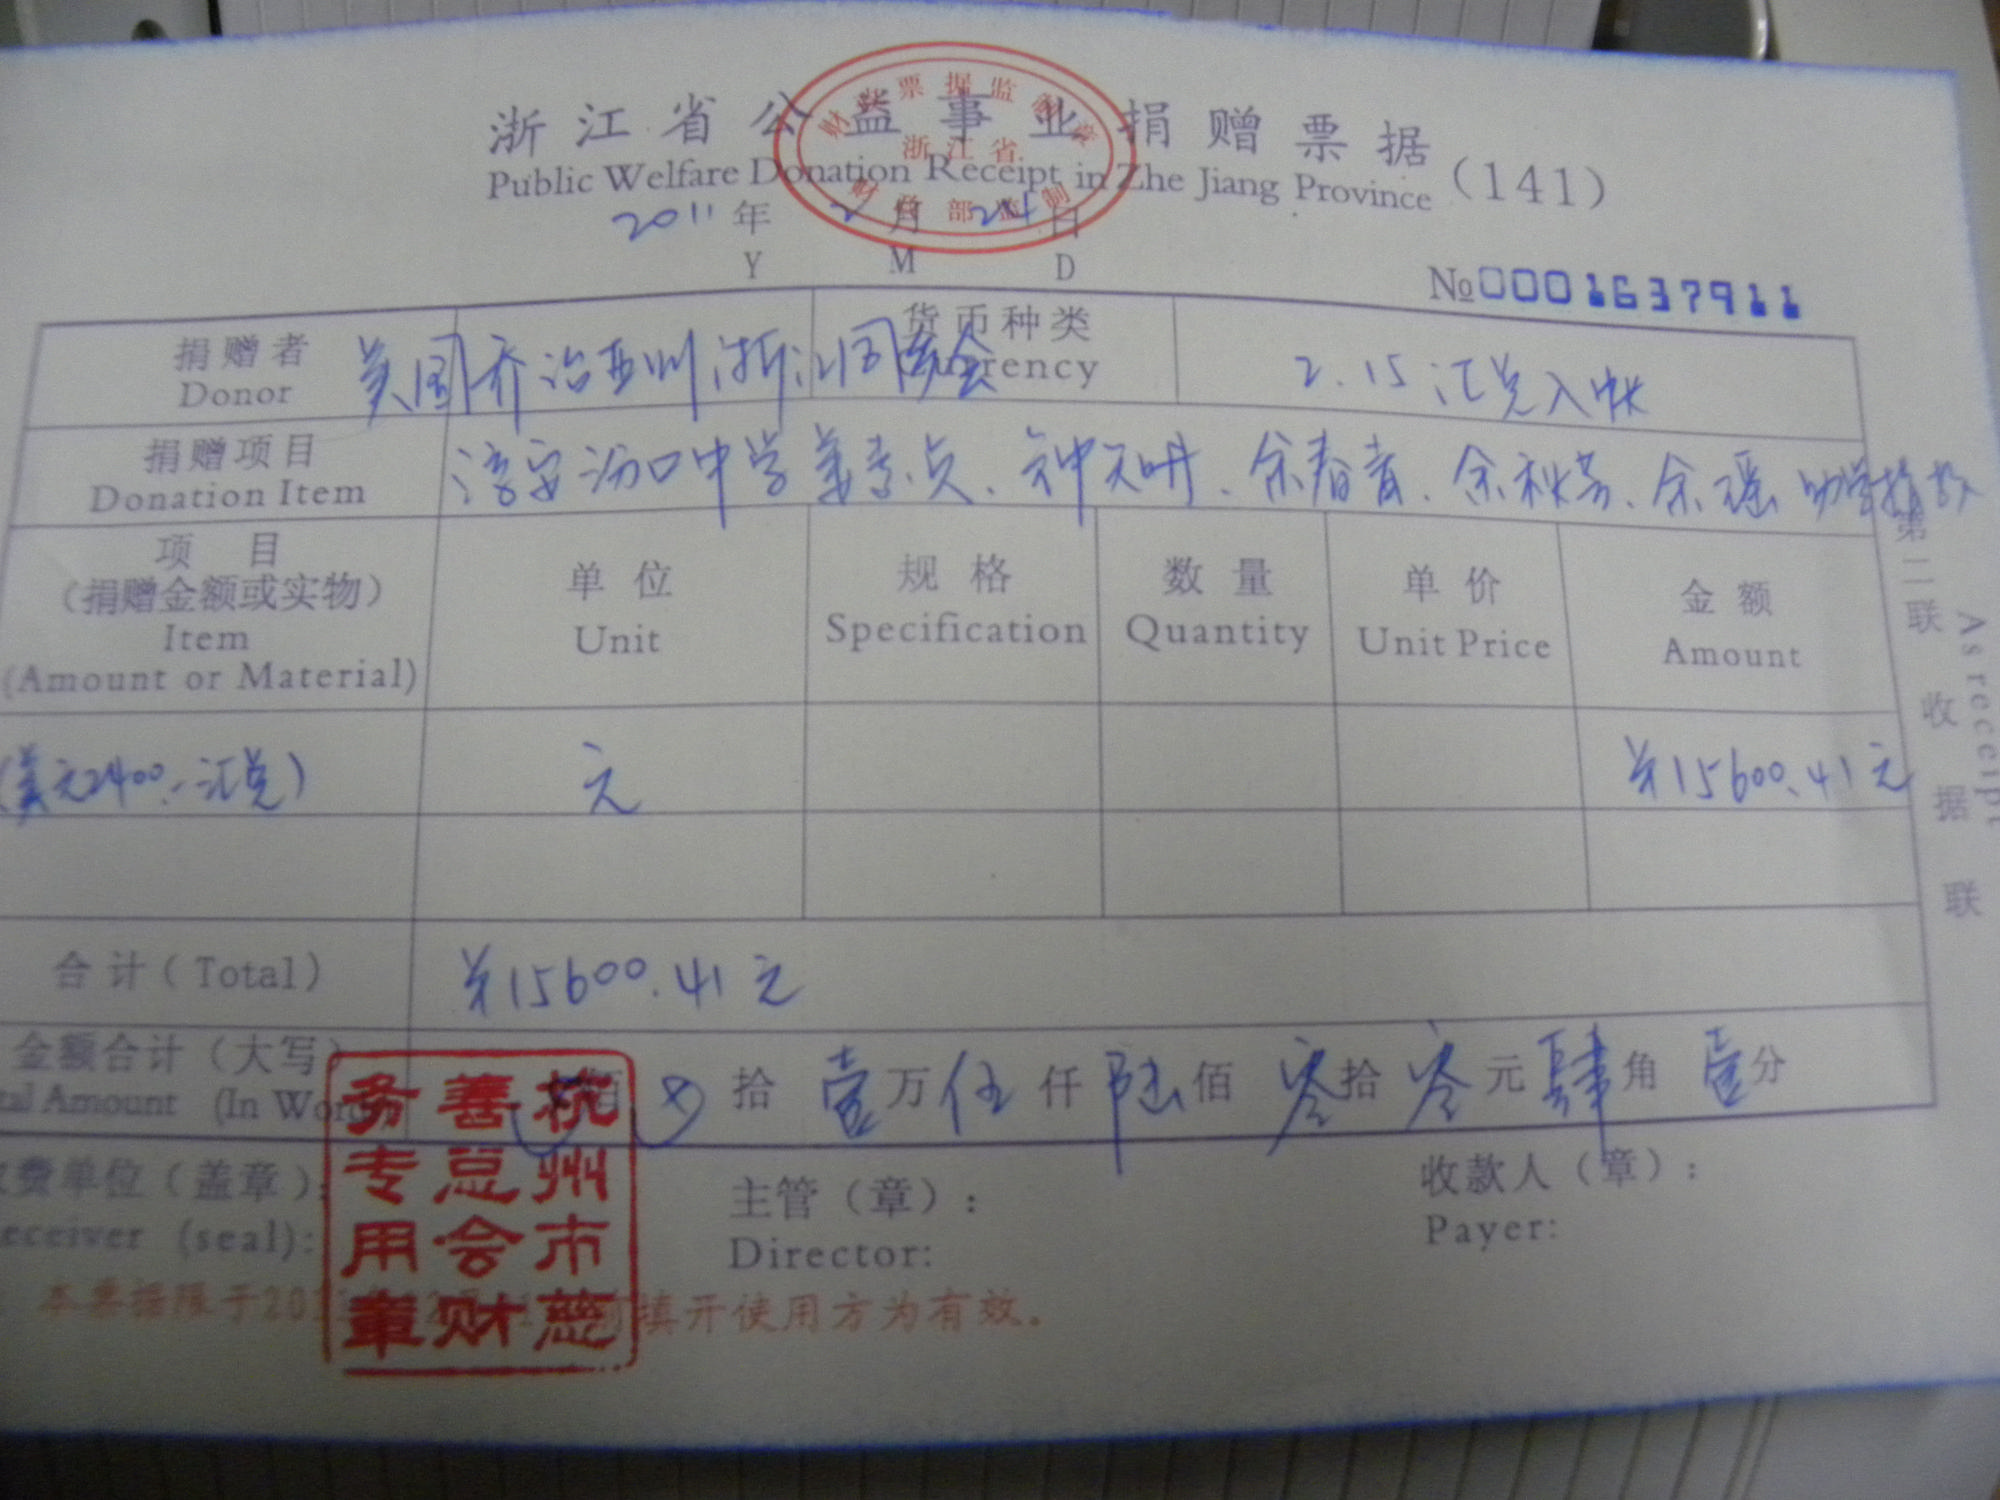 浙江省公益事业捐赠票据
Public Welfare Donation Receipt in Zhe Jiang Province (141)
财政票据监制章
浙江省
财政部监制
2011年 2月 24日
Y M D
№0001637911
捐赠者 美国乔治亚州浙江同乡会 货币种类 2.15汇兑入帐
Donor Currency
捐赠项目 淳安汾口中学姜 点、钟天明、余春青、余秋芳、余瑶 助学捐款
Donation Item
项 目 单位 规格 数量 单价 金额
(捐赠金额或实物)
Item Unit Specification Quantity Unit Price Amount
(Amount or Material)
(美元2400.-汇兑) 元 ¥15600.41元
合计(Total) ¥15600.41元
金额合计(大写) 佰 ⊗ 拾 壹万伍仟陆佰零拾零元肆角壹分
tal Amount (In Wor
费单位(盖章): 主管(章): 收款人(章):
eceiver (seal): Director: Payer:
杭州市慈善总会财务专用章
本票据限于201 填开使用方为有效。
第二联 收据联
As receipt